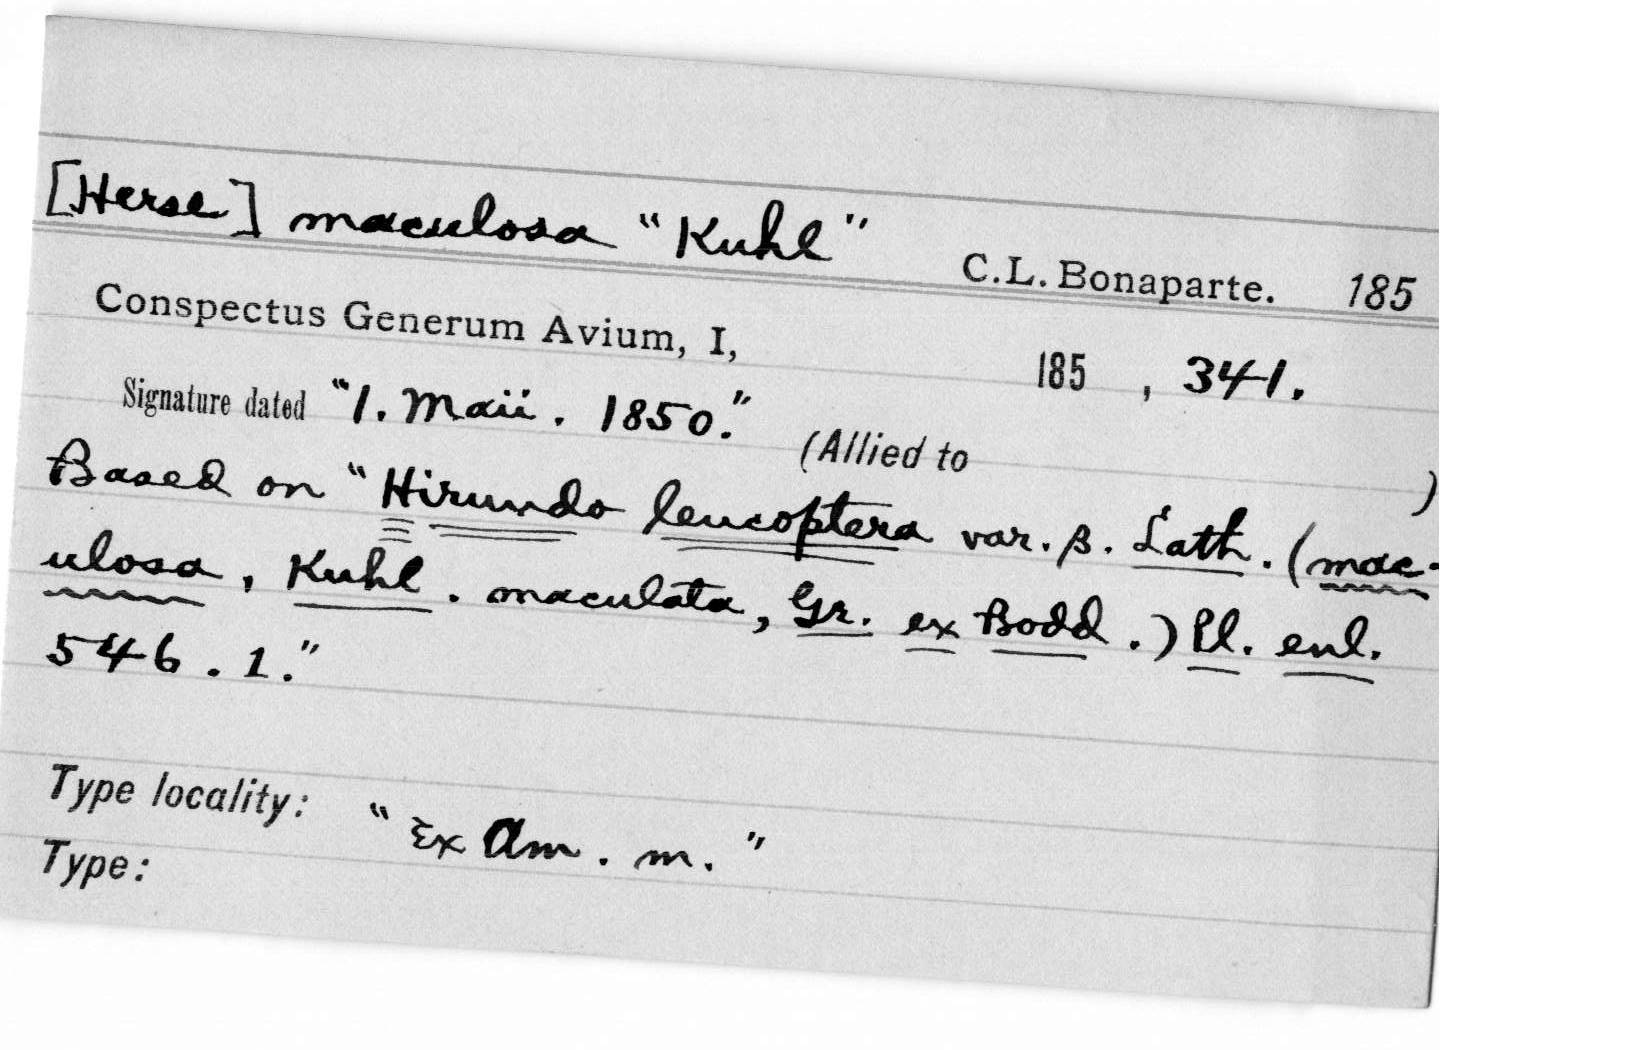 [Herse] maculosa "Kuhl" C.L. Bonaparte. 185
Conspectus Generum Avium, I, 185 , 341.
Signature dated "1. Maii. 1850." (Allied to )
Based on "Hirundo leucoptera var. β. Lath. (mac-
ulosa, Kuhl. maculata, Gr. ex Bodd.) Pl. enl.
546. 1."
Type locality: "Ex Am. m."
Type: